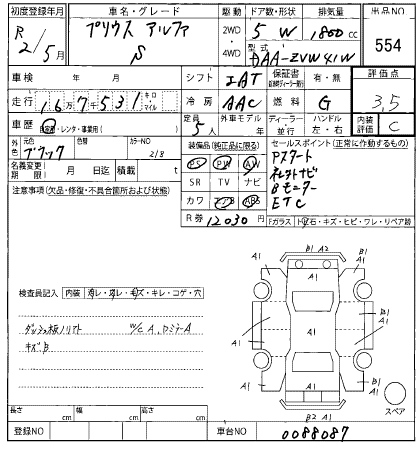 初度登録年月 車名・グレード 駆動 ドア数・形状 排気量 出品NO
R 2/5月 プリウス アルファ S 2WD・4WD 5 W 1800cc 554
型式 DAA-ZVW41W
車検 年 月 シフト IAT 保証書 有・無 評価点
走行 16万7千531 キロ・マイル 冷房 AAC 燃料 G 3.5
車歴 自家用・レンタ・事業用( ) 定員 5人 外車モデル 年 ディーラー・並行 ハンドル 左・右 内装評価 C
外色 元色 ブラック 色替 カラーNO 218
装備品(純正品に限る) セールスポイント(正常に作動するもの)
名義変更期限 月 日迄 積載 t
PS PW AW
SR TV ナビ
カワ エアB ABS
R券 12030円
Pスタート
ネットナビ
Bモニター
ETC
注意事項(欠品・修復・不具合箇所および状態)
Fガラス トビ石・キズ・ヒビ・ワレ・リペア跡
検査員記入 内装 スレ・汚レ・キズ・キレ・コゲ・穴
W/C A、
キズB
A1
B1 A2
B1
A1
A1
A1
A1
A1
A1
A1
A1
B1
A1
B2 A1
スペア
長さ cm 幅 cm 高さ cm
登録NO 車台NO 0088087